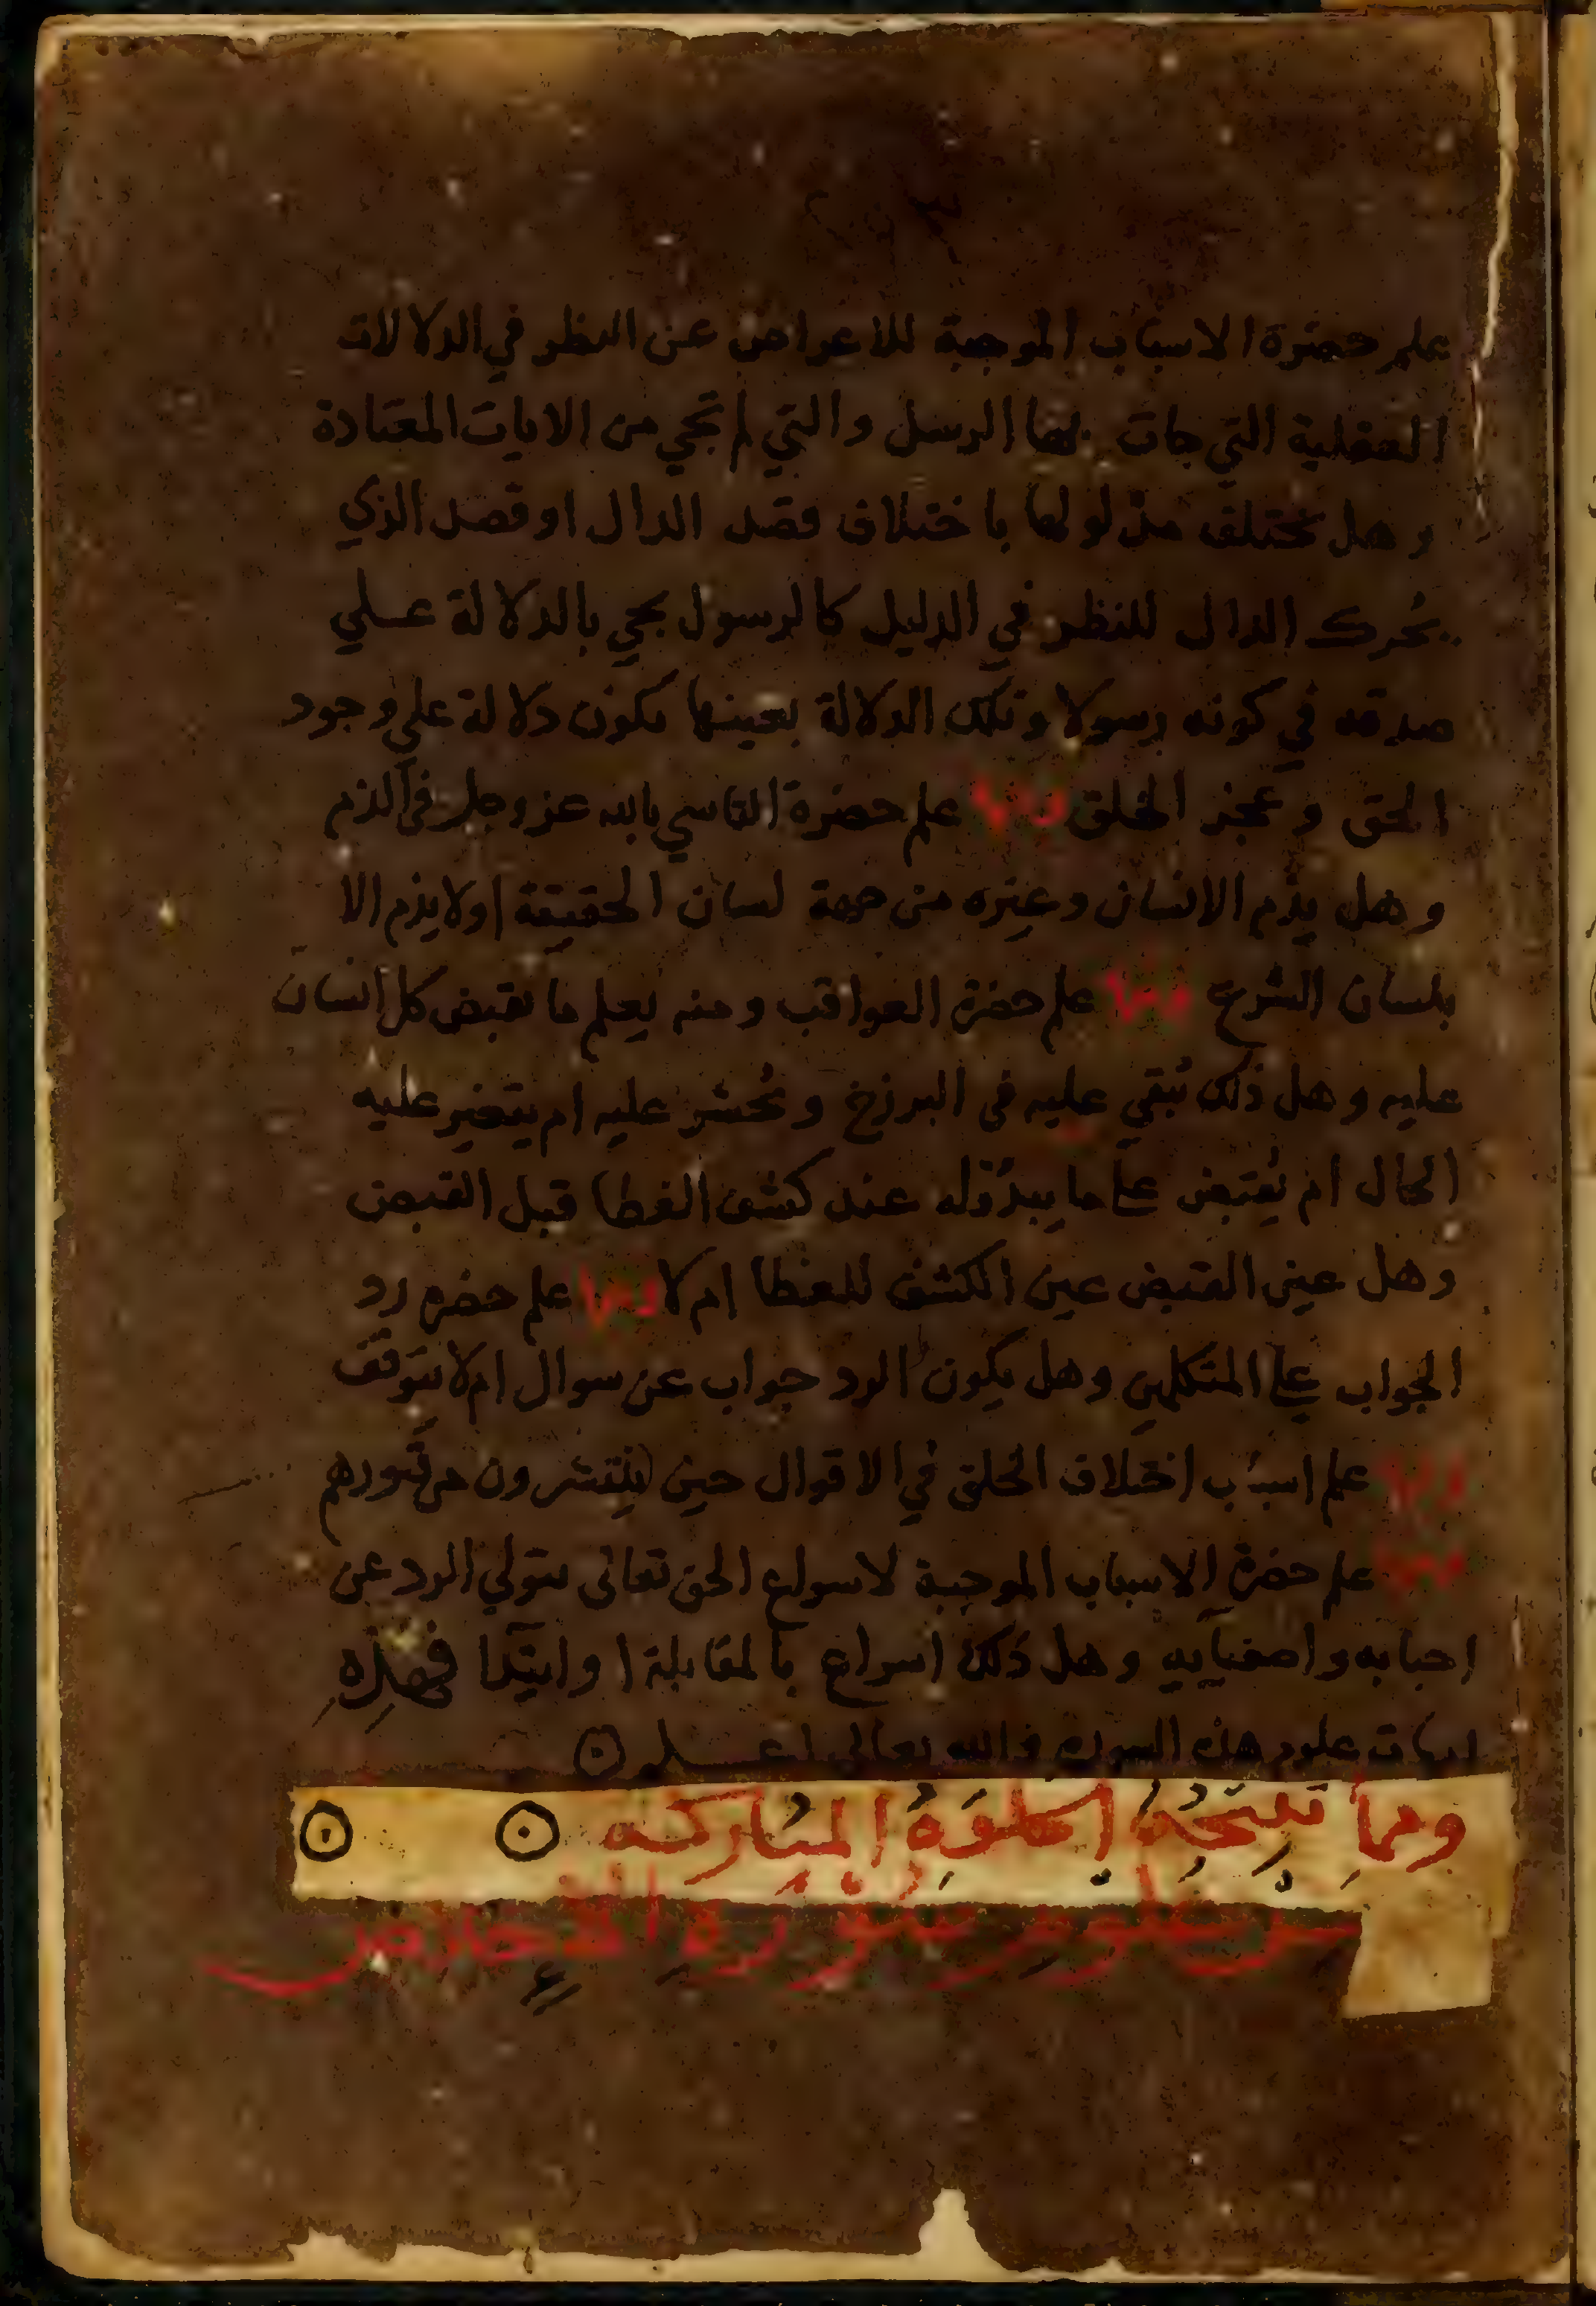 علم حضرة الاسباب الموجبة للاعراض عن النظر في الدلالات
العقلية التي جات بها الرسل والتي لم تجي من الايات المعتادة
وهل تختلف مدلولها باختلاف قصد الدال او قصد الذي
يُحرك الدال للنظر في الدليل كالرسول يجي بالدلالة علي
صدقه في كونه رسولا وتلك الدلالة بعينها تكون دلالة علي وجود
الحق وعجز الخلق ومنها علم حضرة التاسي بالله عز وجل في الذم
وهل يذم الانسان وغيره من جهة لسان الحقيقة اولا يذم الا
بلسان الشرع ومنها علم حضرة العواقب ومنه يعلم ما يقبض كل انسان
عليه وهل ذلك يُبقي عليه في البرزخ ويُحشر عليه ام يتغير عليه
الحال ام يُقبض علي ما يبدُو له عند كشف الغطا قبل القبض
وهل عين القبض عين الكشف للغطا ام لا ومنها علم حضره رد
الجواب علي المتكلمين وهل يكون الرد جواب عن سوال ام لا يتوقف
ومنها علم اسباب اختلاف الخلق في الاقوال حين ينتشرون من قبورهم
ومنها علم حضرة الاسباب الموجبة لاسراع الحق تعالى يتولي الرد عن
احبابه واصفيايه وهل ذلك اسراع بالمقابلة او ابتدا فهذه
امهات علوم هذه السوره والله تعالى اعلم
ومما نتيجة الخلوة المباركه
من علوم سورة الاخلاص